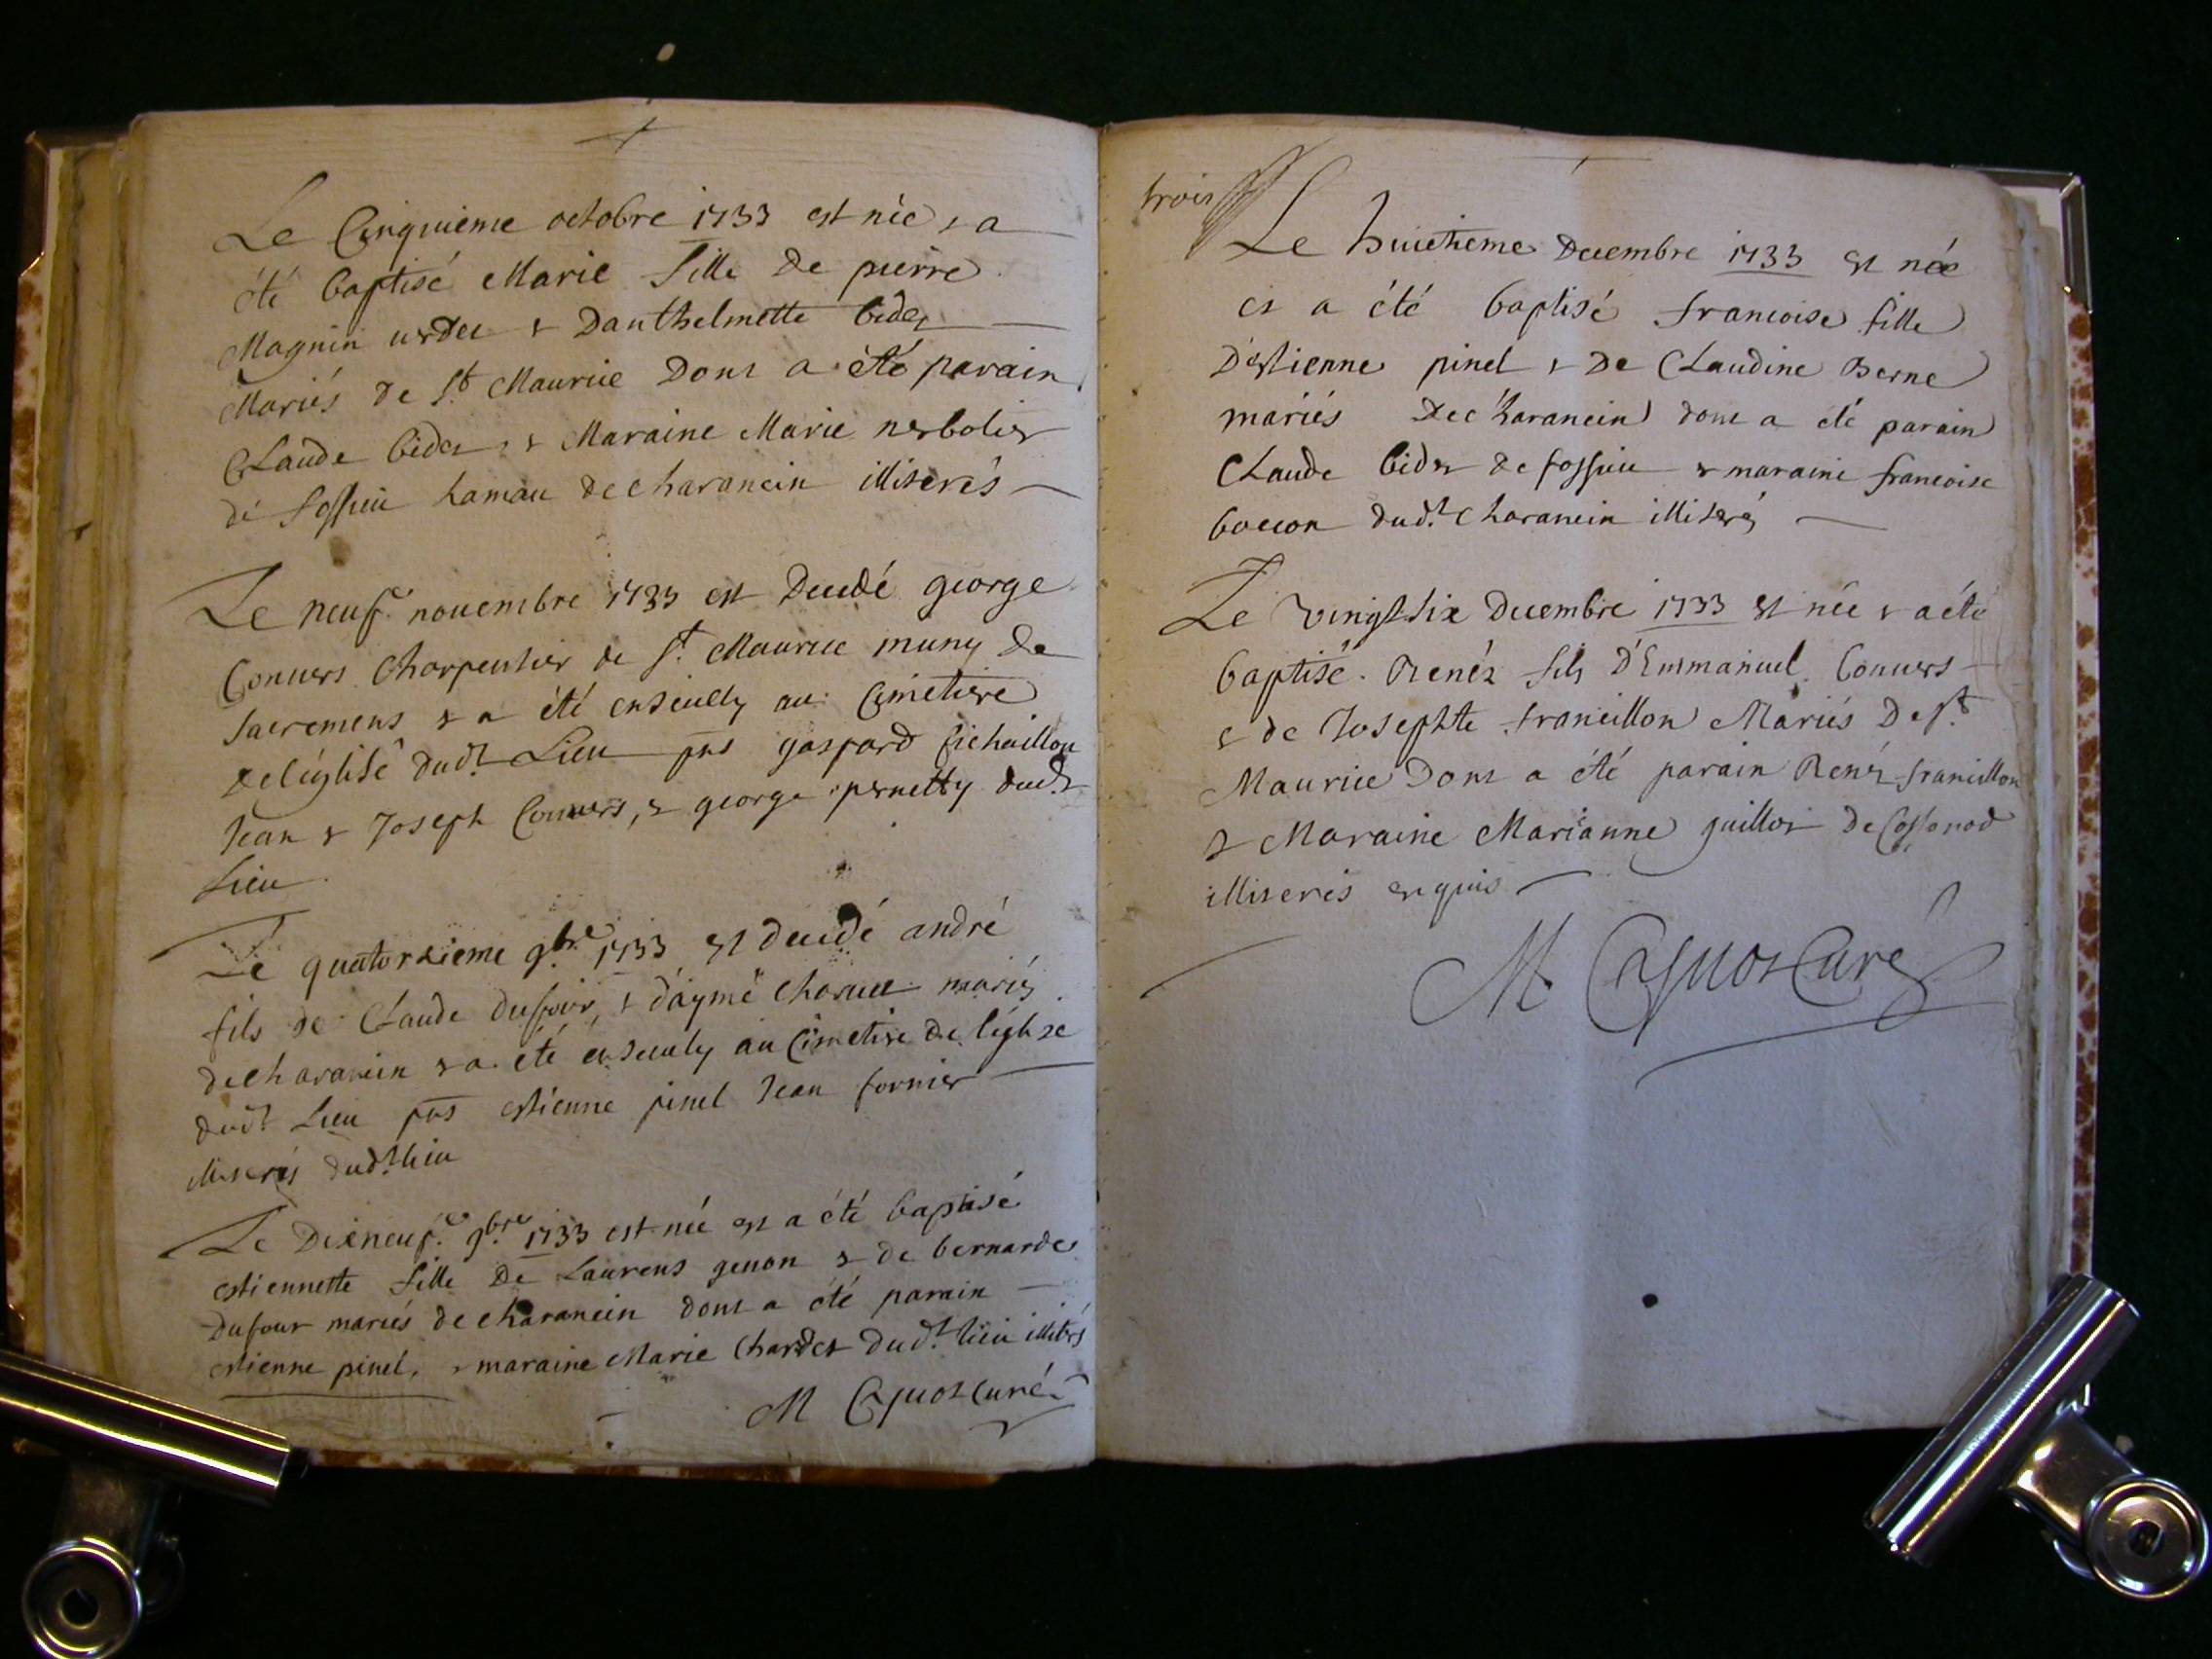 Le Cinquieme octobre 1733 est née & a
été baptisé Marie fille de pierre
Magnin & Danthelmette bidet
Mariés de St Maurice Dont a été parain
Claude bidet & Maraine Marie nerbolier
de fossieu hamau de charancin illiterés
Le neuf.e nouembre 1733 est Decedé george
Conuers Charpentier de St Maurice muny de
sacremens & a été enseuely au Cimetiere
de l'église dudt Lieu pns gaspard Michaillon
Jean & Joseph Conuers, & george pernetty dudt
Lieu.
Le quatorzieme 9bre 1733 est decedé andré
fils de Claude dufour, & d'aymé Charuet mariés
de charancin & a été enseuely au Cimetire de l'église
dudt Lieu pns estienne pinel Jean fornier
illiterés dudt lieu
Le Dixneuf.e 9bre 1733 est née et a été baptisé
estiennette fille De Laurens genon & de bernarde
Dufour mariés de charancin dont a été parain
estienne pinel, & maraine Marie Chardet dudt lieu illiterés
M Cujnot Curé
trois
Le huictieme Decembre 1733 est née
et a été baptisé francoise fille
D'estienne pinel & De Claudine Berne
mariés de charancin dont a été parain
Claude bidet de fossieu & maraine francoise
boccon dudt Charancin illiterés
Le vingt six Decembre 1733 est née & a été
baptisé. Renéz fils D'Emmanuel Conuers
& de Josephte francillon Mariés De St
Maurice Dont a été parain Renéz francillon
& Maraine Marianne guillot de Cossonod
illiterés enquis
M. Cujnot Curé